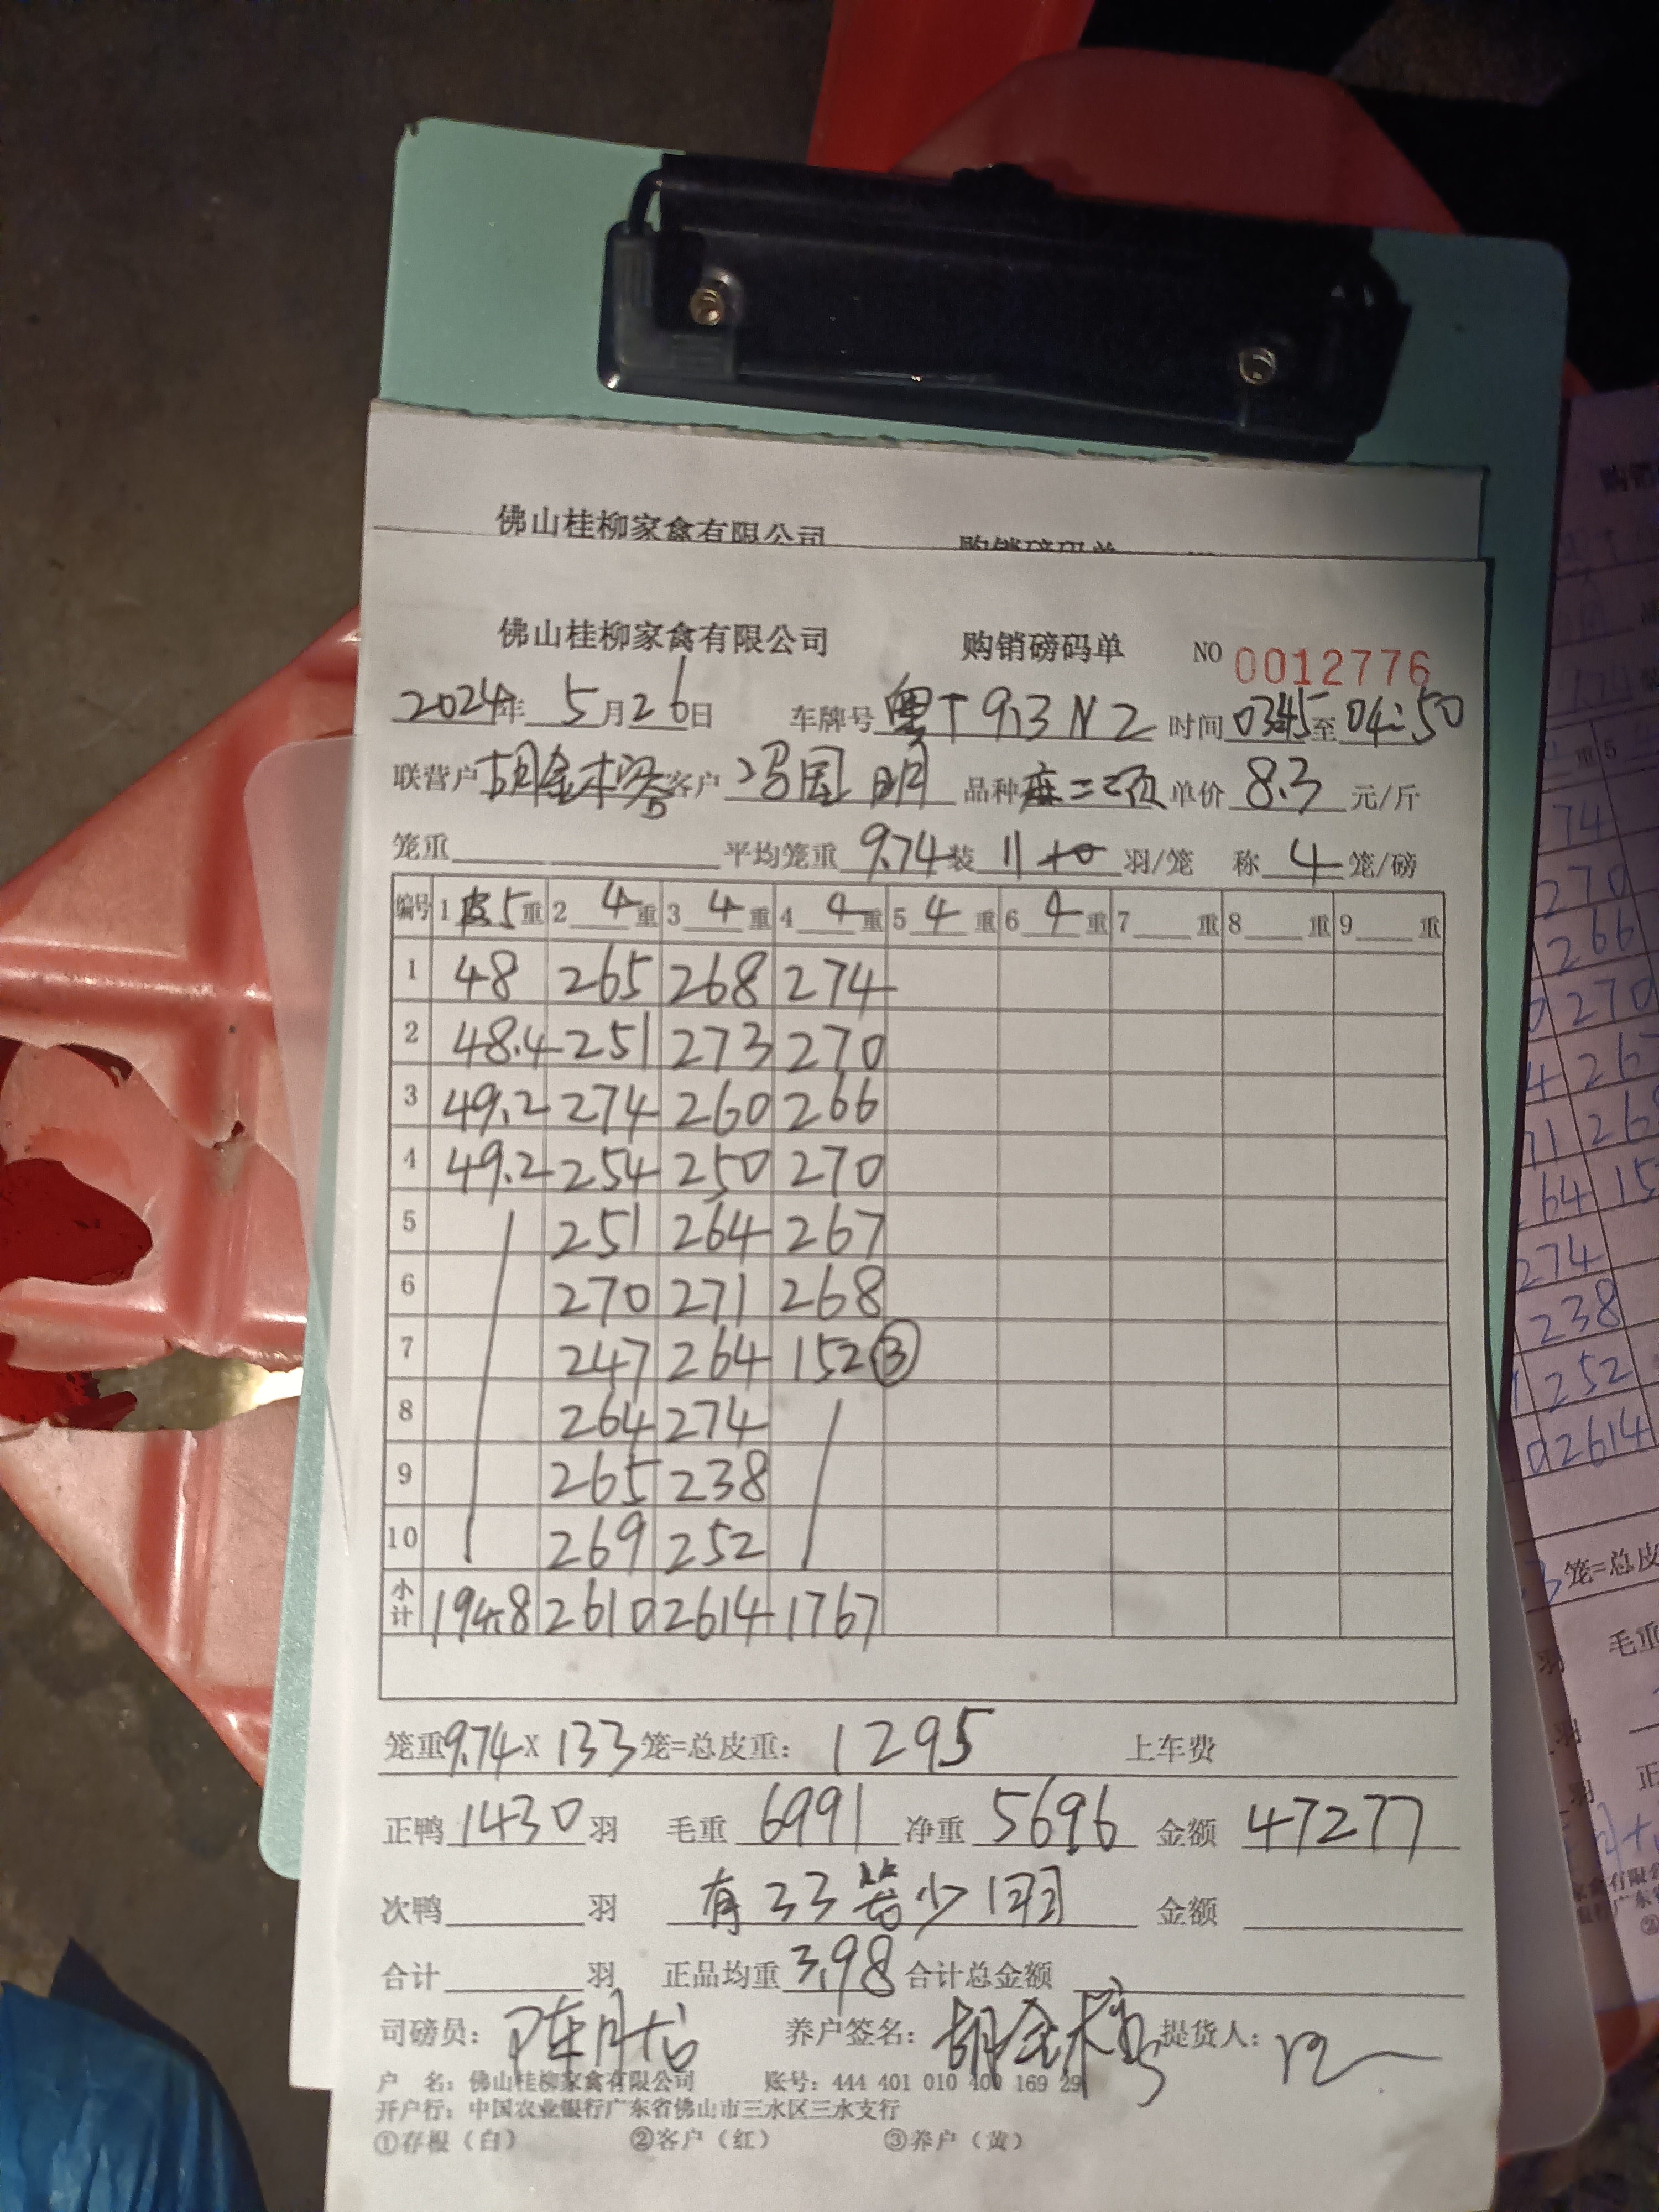 佛山桂柳家禽有限公司 购销磅码单
佛山桂柳家禽有限公司 购销磅码单 NO 0012776
2024年 5月26日 车牌号 粤T93N2 时间 0345至04:50
联营户 胡金 客户 冯国明 品种 麻二 单价 8.3 元/斤
笼重 平均笼重 9.74 装 11 10 羽/笼 称 4 笼/磅
编号 1 皮5重 2 4重 3 4重 4 4重 5 4重 6 4重 7 重 8 重 9 重
1 48 265 268 274
2 48.4 251 273 270
3 49.2 274 260 266
4 49.2 254 250 270
5 251 264 267
6 270 271 268
7 247 264 152 ③
8 264 274
9 265 238
10 269 252
小计 194.8 2610 2614 1767
笼重9.74X 133 笼=总皮重: 1295 上车费
正鸭 1430 羽 毛重 6991 净重 5696 金额 47277
次鸭 羽 有33笼少1羽 金额
合计 羽 正品均重 3.98 合计总金额
司磅员: 陈月 养户签名: 胡金 提货人:
户 名: 佛山桂柳家禽有限公司 账号: 444 401 010 400 169 29
开户行: 中国农业银行广东省佛山市三水区三水支行
①存根(白) ②客户(红) ③养户(黄)
购销
重 5
74
270
266
270
71
64 15
274
238
252
2614
笼=总皮
羽 毛重